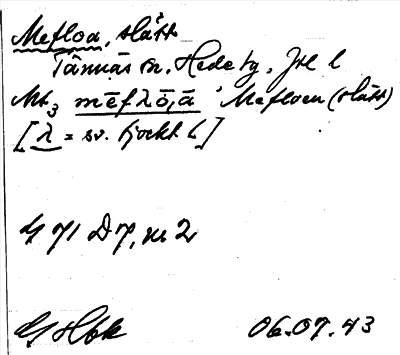 Mefloa, slått
Tännäs sn. Hede tg. Jtl l
Mt3 mēfλō,ā ' Mefloen (slått)
[λ = sv. tjockt l]
G 71 D 7, nr 2
06.07.43